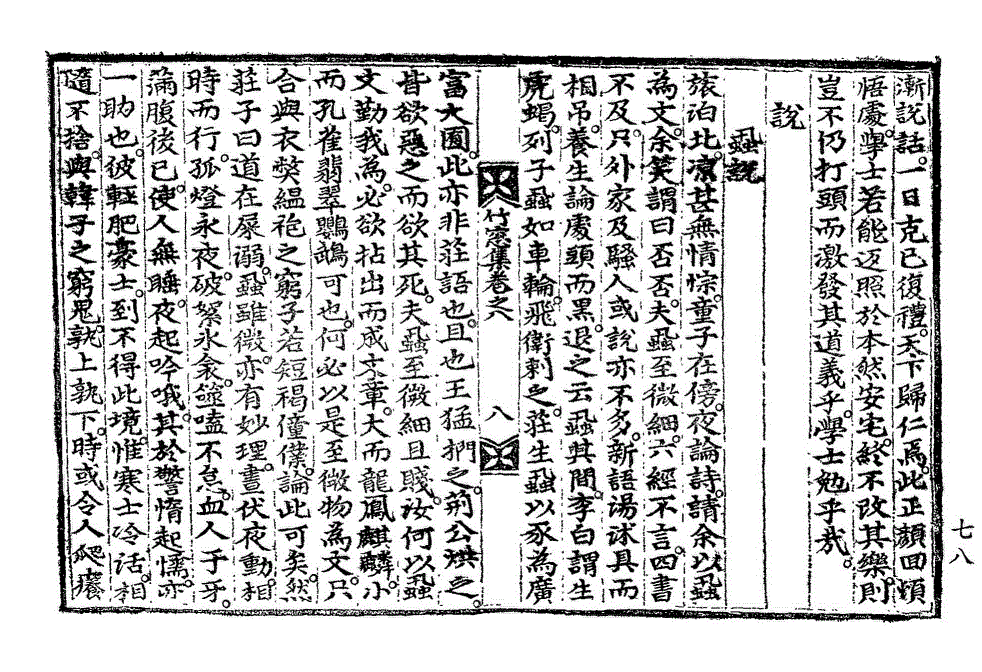 漸說話。一日克己復禮。天下歸仁焉。此正顏回頓
悟處。學士若能迈照於本然安宅。終不改其樂。則
豈不仍打頭而激發其道義乎。學士勉乎哉。
說
蝨說
旅泊北。凛甚無情悰。童子在傍。夜論詩。請余以蝨
為文。余笑謂曰否否。夫蝨至微細。六經不言。四書
不及。只外家及騷人或說亦不多。新語湯沭具而
相吊。養生論處頭而黑。退之云蝨其間。李白謂生
虎蝎。列子蝨如車輪。飛衛剌之。莊生蝨以豕為廣
竹窓集卷之
八
富大囿。此亦非莊語也。且也王猛捫之。荊公烘之。
皆欲惡之而欲其死。夫蝨至微細且賤。汝何以蝨
文勤我為。必欲拈出而成文章。大而龍鳳麒麟。小
而孔雀翡翠鸚鵡可也。何必以是至微物為文。只
合與衣獘縕袍之窮子若短褐僮僕。論此可矣。然
莊子曰道在屎溺。蝨雖微。亦有妙理。晝伏夜動。相
時而行。孤燈永夜。破絮氷衾。噬嗑不怠。血人于牙。
滿腹後已。使人無睡。夜起吟哦。其於警惰起懦。亦
一助也。彼輕肥豪士。到不得此境。惟寒士冷活。相
隨不捨。與韓子之窮鬼。孰上孰下。時或令人爬癢
七八